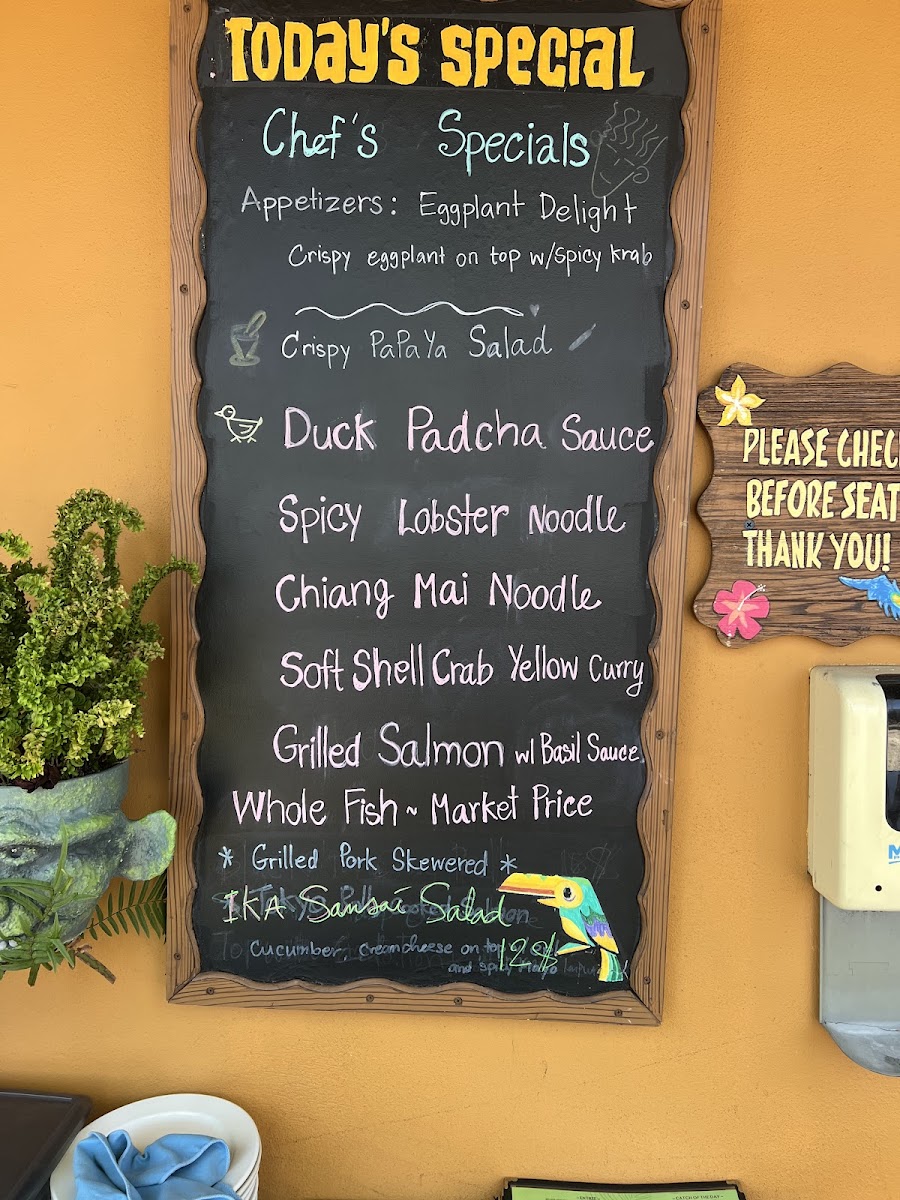 Today's Special
Chef's Specials
Appetizers: Eggplant Delight
Crispy eggplant on top w/spicy krab
Crispy PaPaYa Salad
Duck Padcha Sauce
Spicy Lobster Noodle
Chiang Mai Noodle
Soft Shell Crab Yellow Curry
Grilled Salmon w/ Basil Sauce
Whole Fish ~ Market Price
* Grilled Pork Skewered *
IKA Sansai Salad
Cucumber, creamcheese on top
12$
and spicy mayo
PLEASE CHEC
BEFORE SEAT
THANK YOU!